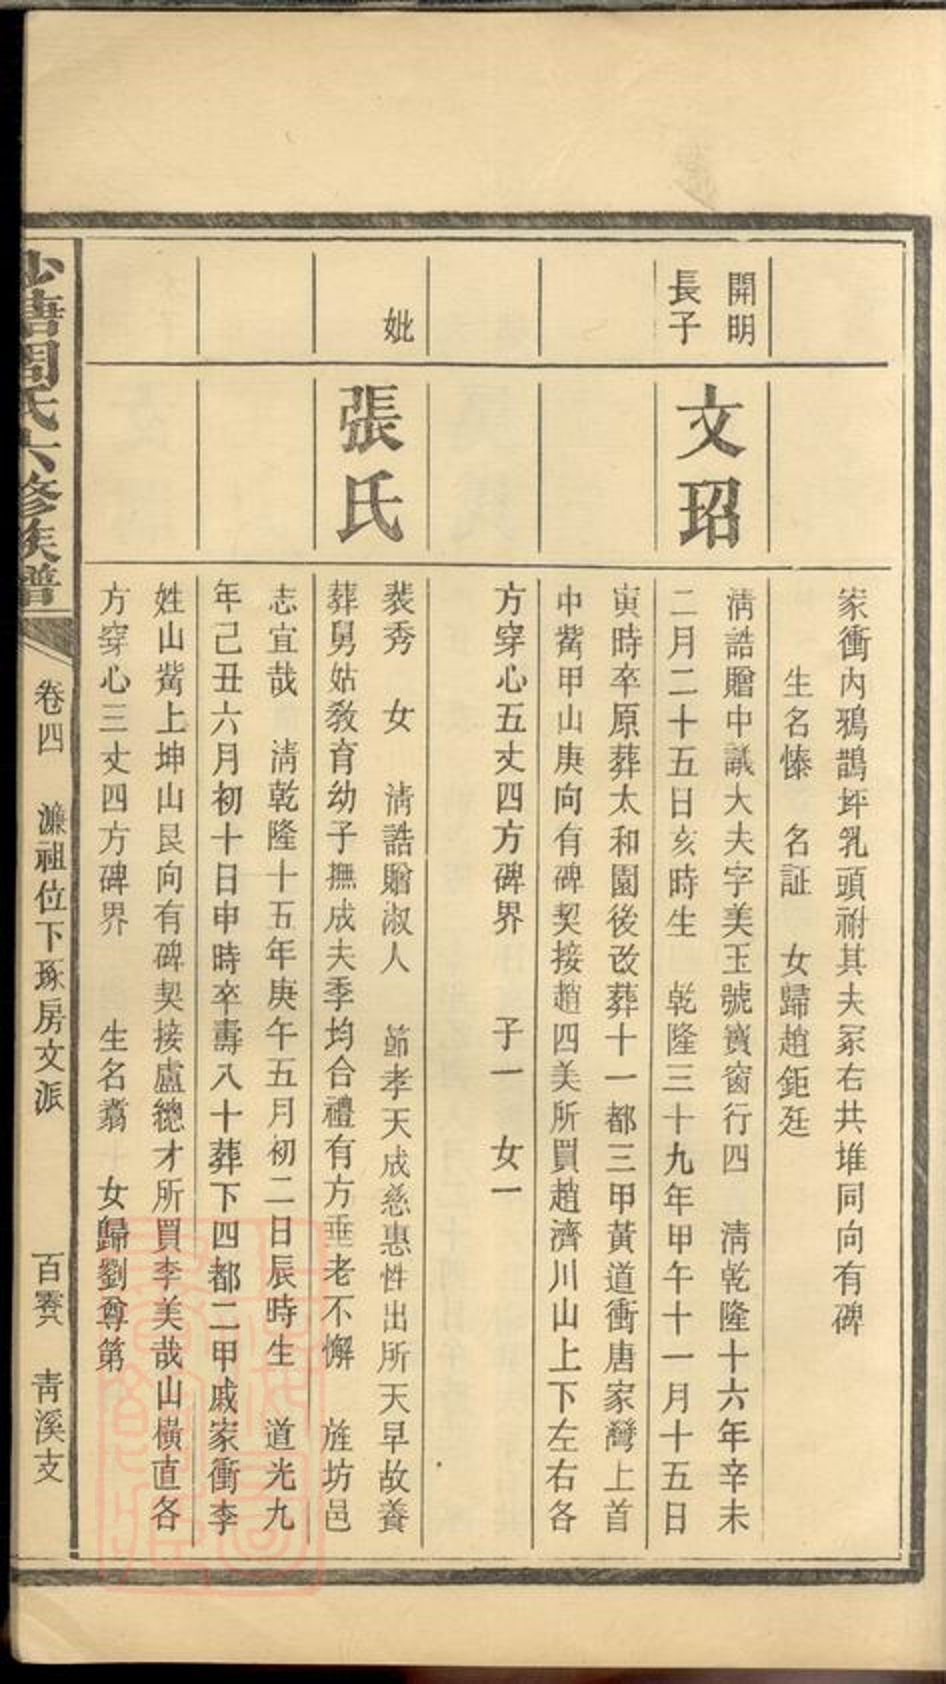 家衝內鴉鵲坪乳頭祔其夫冢右共堆同向有碑
生名愫　名証　女歸趙鉅廷
開明
長子
文玿
清誥贈中議大夫字美玉號寶窗行四　清乾隆十六年辛未
二月二十五日亥時生　乾隆三十九年甲午十一月十五日
寅時卒原葬太和園後改葬十一都三甲黃道衝唐家灣上首
中觜甲山庚向有碑契接趙四美所買趙濟川山上下左右各
方穿心五丈四方碑界　子一　女一
妣
張氏
裴秀　女　清誥贈淑人　節孝天成慈惠性出所天早故養
葬舅姑教育幼子撫成夫季均合禮有方垂老不懈　旌坊邑
志宜哉　清乾隆十五年庚午五月初二日辰時生　道光九
年己丑六月初十日申時卒壽八十葬下四都二甲戚家衝李
姓山觜上坤山艮向有碑契接盧總才所買李美哉山橫直各
方穿心三丈四方碑界　生名翥　女歸劉尊第
沙塘周氏六修族譜
卷四　濂祖位下琢房文派　百零八　青溪支